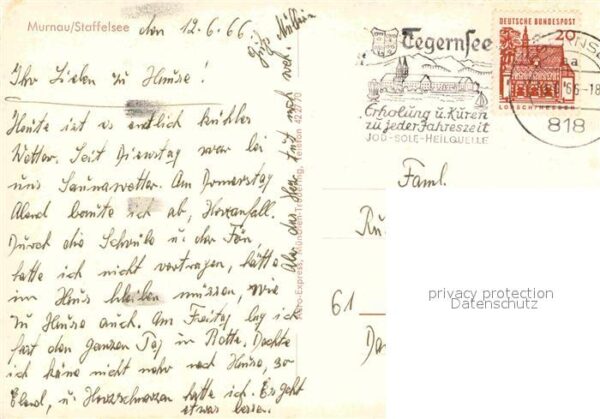 Murnau/Staffelsee den 12.6.66.
Ihr Lieben zu Hause!
Heute ist es endlich kühles
Wetter. Seit Dienstag war bei
uns Saunawetter. Am Donnerstag
Abend baute ich ab, Herzanfall.
Durch die Schwüle u. der Fön,
hatte ich nicht vertragen, hätte
im Haus bleiben müssen, wie
zu Hause auch. Am Freitag lag ich
fast den ganzen Tag in Bette. Dachte
ich käme nicht mehr nach Hause, so
Elend, u. Herzschmerzen hatte ich. Es geht
etwas besser.
Aber das Herz tut noch weh.
Aero-Express, München-Trudering, Telefon 42
Tegernsee
Erholung u. Kuren
zu jeder Jahreszeit
JOD-SOLE-HEILQUELLE
DEUTSCHE BUNDESPOST
20
LORSCH/HESSEN
818
Faml.
61
privacy protection
Datenschutz